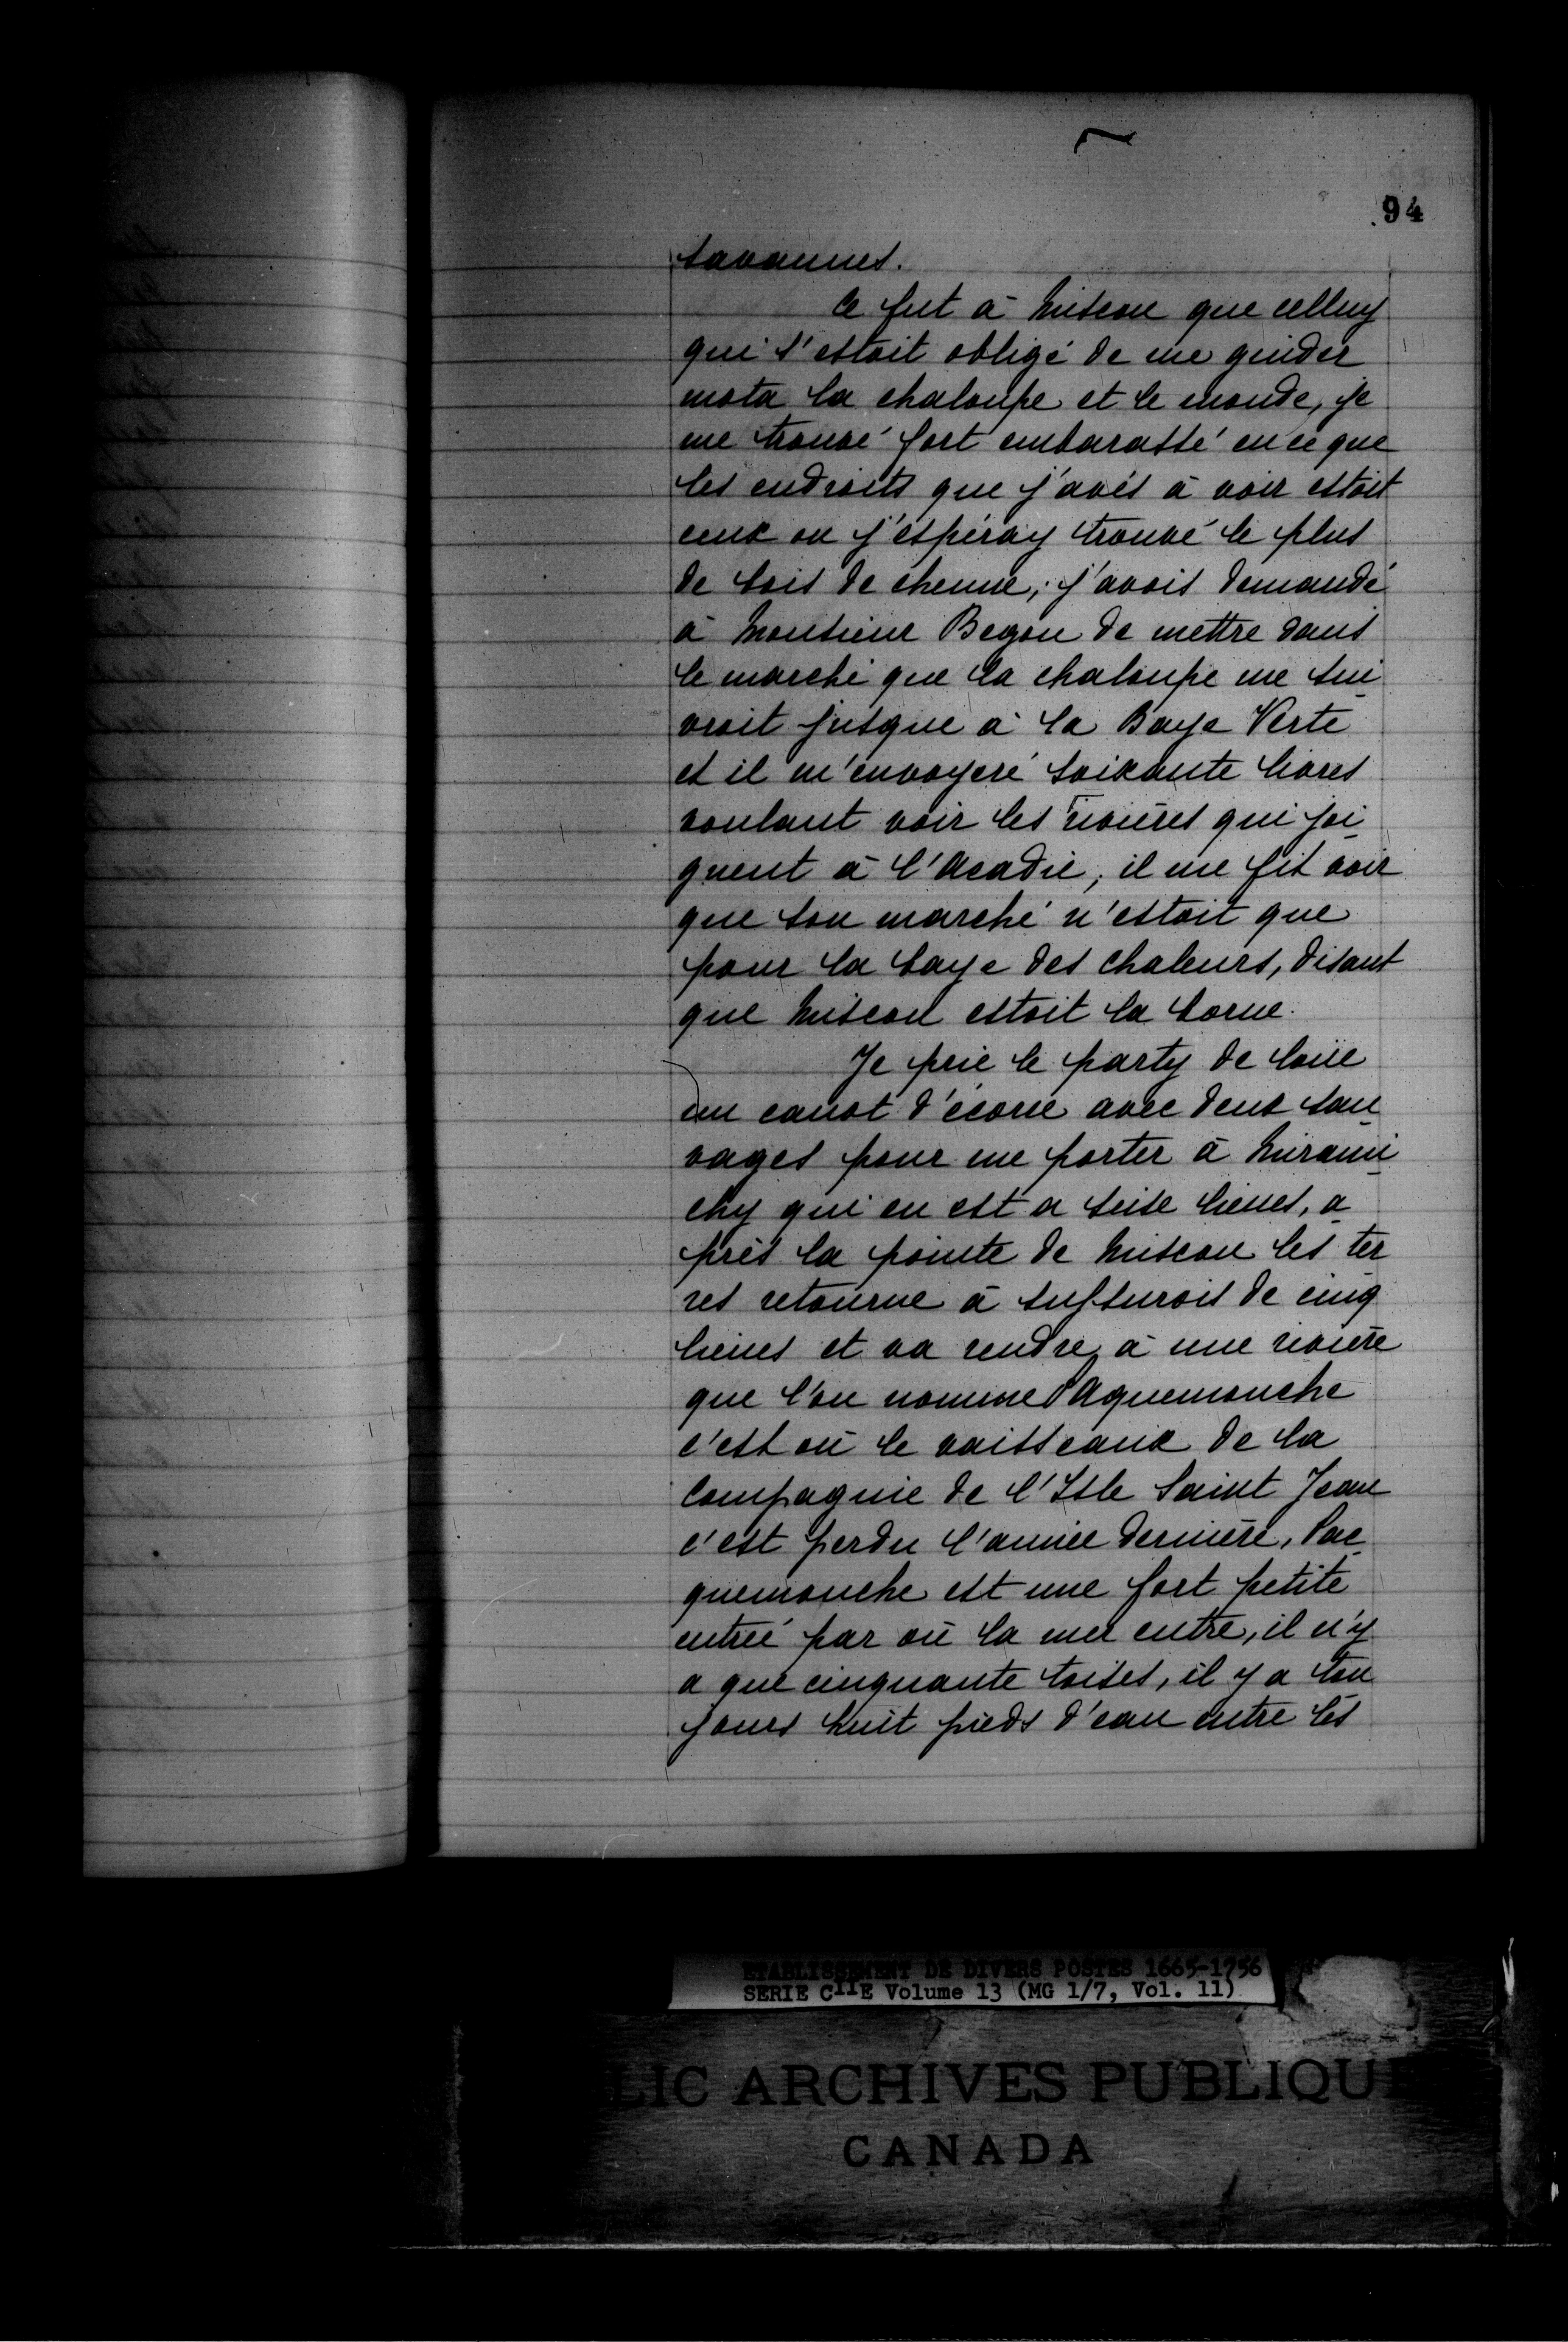 94
savannes.
Ce fut à Miscou que celluy
qui s'estoit obligé de me guider
mota la chaloupe et le monde, je
me trouvé fort embarassé en ce que
les endroits que j'avés à voir estoit
ceux ou j'espéray trouvé le plus
de bois de chenne, j'avois demandé
à Monsieur Begon de mettre dans
le marché que la chaloupe me sui
vroit jusque à la Baye Verte
et il m'envoyeré soixante livres
voulant voir les rivières qui joi
gnent à l'Acadie, il me fit voir
que son marché n'estoit que
pour la baye des chaleurs, disant
que Miscou estoit la borne.
Je prie le party de loüe
un canot d'écorce avec deux sau
vages pour me porter à Mirami
chy qui en est a seise lieues, a
près la pointe de Miscou les ter
res retourne à susurois de cinq
lieues et va rendre à une rivière
que l'on nomme Paquemouche
c'est où le vaisseaux de la
Compagnie de l'Isle Saint Jean
c'est perdu l'année dernière, Pac
quemouche est une fort petite
entrée par où la mer entre, il n'y
a que cinquante toises, il y a tou
jours huit pieds d'eau entre les
ETABLISSEMENT DE DIVERS POSTES 1665-1756
SERIE CIIE Volume 13 (MG 1/7, Vol. 11)
LIC ARCHIVES PUBLIQUE
CANADA